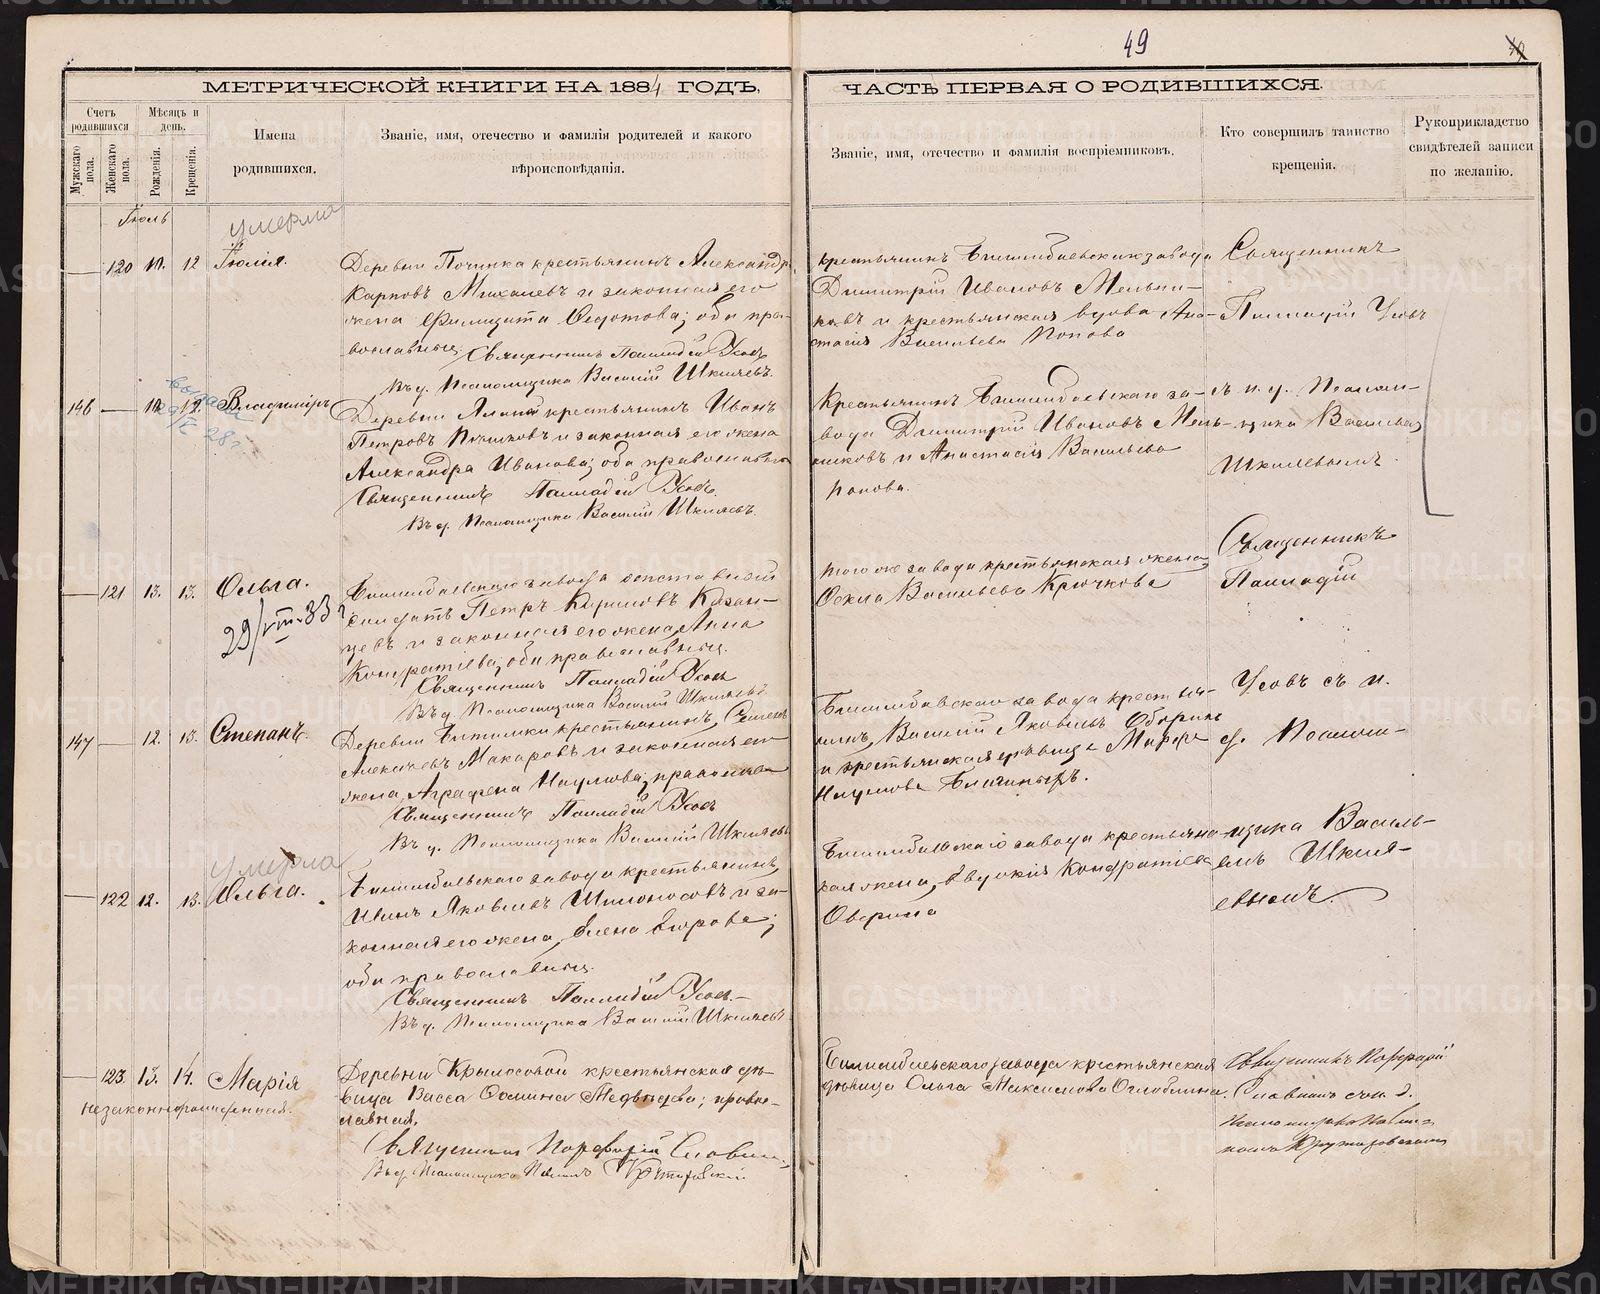 49
МЕТРИЧЕСКОЙ КНИГИ НА 1884 ГОДЪ,
ЧАСТЬ ПЕРВАЯ О РОДИВШИХСЯ.
Счетъ родившихся
Мужскаго пола.
Женскаго пола.
Мѣсяцъ и день.
Рожденія.
Крещенія.
Имена родившихся.
Званіе, имя, отечество и фамилія родителей и какого вѣроисповѣданія.
Званіе, имя, отечество и фамилія воспріемниковъ.
Кто совершилъ таинство крещенія.
Рукоприкладство свидѣтелей записи по желанію.
Іюль
умерла
120 12 Іюлія.
Деревни Починка крестьянинъ Александръ
Карповъ Михалевъ и законная его
жена Филицата Федотова; оба пра-
вославные
Священникъ Палладій Усовъ
Въ д. Псаломщика Василій Шкляевъ.
крестьянинъ Билимбаевскаго завода
Димитрій Ивановъ Мельни-
ковъ и крестьянская вдова Ана-
стасія Васильева Попова
Священникъ
Палладій Усовъ
146 12. Владиміръ
28 г.
Деревни крестьянинъ Иванъ
Петровъ и законная его жена
Александра Иванова; оба православные
Священникъ Палладій Усовъ.
Въ д. Псаломщика Василій Шкляевъ.
Крестьянинъ Билимбаевскаго за-
вода Димитрій Ивановъ Мель-
никовъ и Анастасія Васильева
Попова.
съ и. д. Псалом-
щика Василіемъ
Шкляевымъ.
121 13. 13. Ольга.
29/VIII-33 г
Билимбаевскаго завода отставной
солдатъ Петръ Кириловъ Казан-
цевъ и законная его жена Анна
Кондратіева; оба православные.
Священникъ Палладій Усовъ
Въ д. Псаломщика Василій Шкляевъ
того же завода крестьянская жена
Фекла Васильева Крючкова
Священникъ
Палладій
147 12. 13. Степанъ.
Деревни Битимки крестьянинъ
Алексѣевъ Макаровъ и законная его
жена Аграфена Наумова; православные
Священникъ Палладій Усовъ
Въ д. Псаломщика Василій Шкляевъ
Билимбаевскаго завода крестья-
нинъ Василій Яковлевъ
и крестьянская дѣвица Марѳа
Наумова
Усовъ съ и.
д. Псалом-
умерла
122 12. 13. Ольга.
Билимбаевскаго завода крестьянинъ
Иванъ Яковлевъ Шилоносовъ и за-
конная его жена Елена Егорова;
оба православные.
Священникъ Палладій Усовъ.
Въ д. Псаломщика Василій Шкляевъ
Билимбаевскаго завода крестьянс-
кая жена Евдокія Кондратіева
Оверина
щика Василь-
емъ Шкля-
евымъ.
123. 13. 14. Марія
незаконнорожденная.
Деревни Крылосовой крестьянская дѣ-
вица Васса Ѳомина Медвѣдева; право-
славная.
Священникъ Порфирій Славнинъ
Въ д. Псаломщика
Билимбаевскаго завода крестьянская
дѣвица Ольга Максимова Оглоблина.
Священникъ Порфирій
Славнинъ съ и. д.